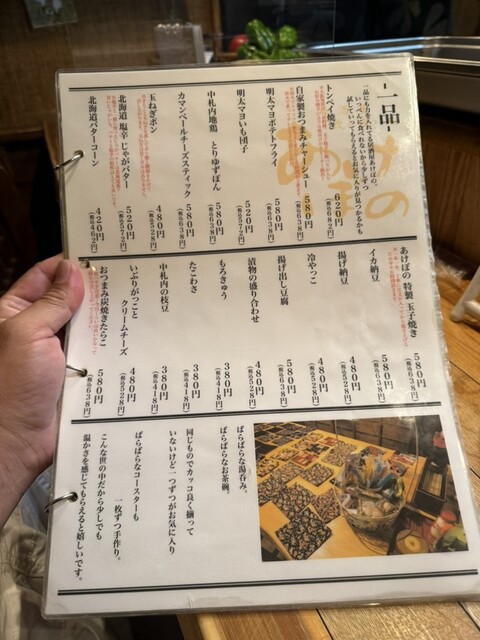 一品
一品にも力を入れてる居酒屋あけぼの。
いっぺんに食べれないから少しずつ
試していってもらえるとお気に入りが見つかるかも
あけぼの
トンペイ焼き 620円(税込682円)
自家製おつまみチャーシュー 580円(税込638円)
明太マヨポテトフライ 580円(税込638円)
明太マヨいも団子 520円(税込572円)
中札内地鶏 とりゆずぽん 580円(税込638円)
カマンベールチーズスティック 580円(税込638円)
玉ねぎポン 480円(税込528円)
北海道 塩辛じゃがバター 520円(税込572円)
北海道バターコーン 420円(税込462円)
あけぼの 特製 玉子焼き 580円(税込638円)
イカ納豆 580円(税込638円)
揚げ納豆 480円(税込528円)
冷やっこ 480円(税込528円)
揚げ出し豆腐 580円(税込638円)
漬物の盛り合わせ 480円(税込528円)
もろきゅう 380円(税込418円)
たこわさ 380円(税込418円)
中札内の枝豆 380円(税込418円)
いぶりがっことクリームチーズ 480円(税込528円)
おつまみ炭焼きたらこ 580円(税込638円)
ばらばらな湯呑み。
ばらばらなお茶碗。
同じものでカッコ良く揃って
いないけど一つずつがお気に入り
ばらばらなコースターも
一枚ずつ手作り。
こんな世の中だから少しでも
温かさを感じてもらえると嬉しいです。